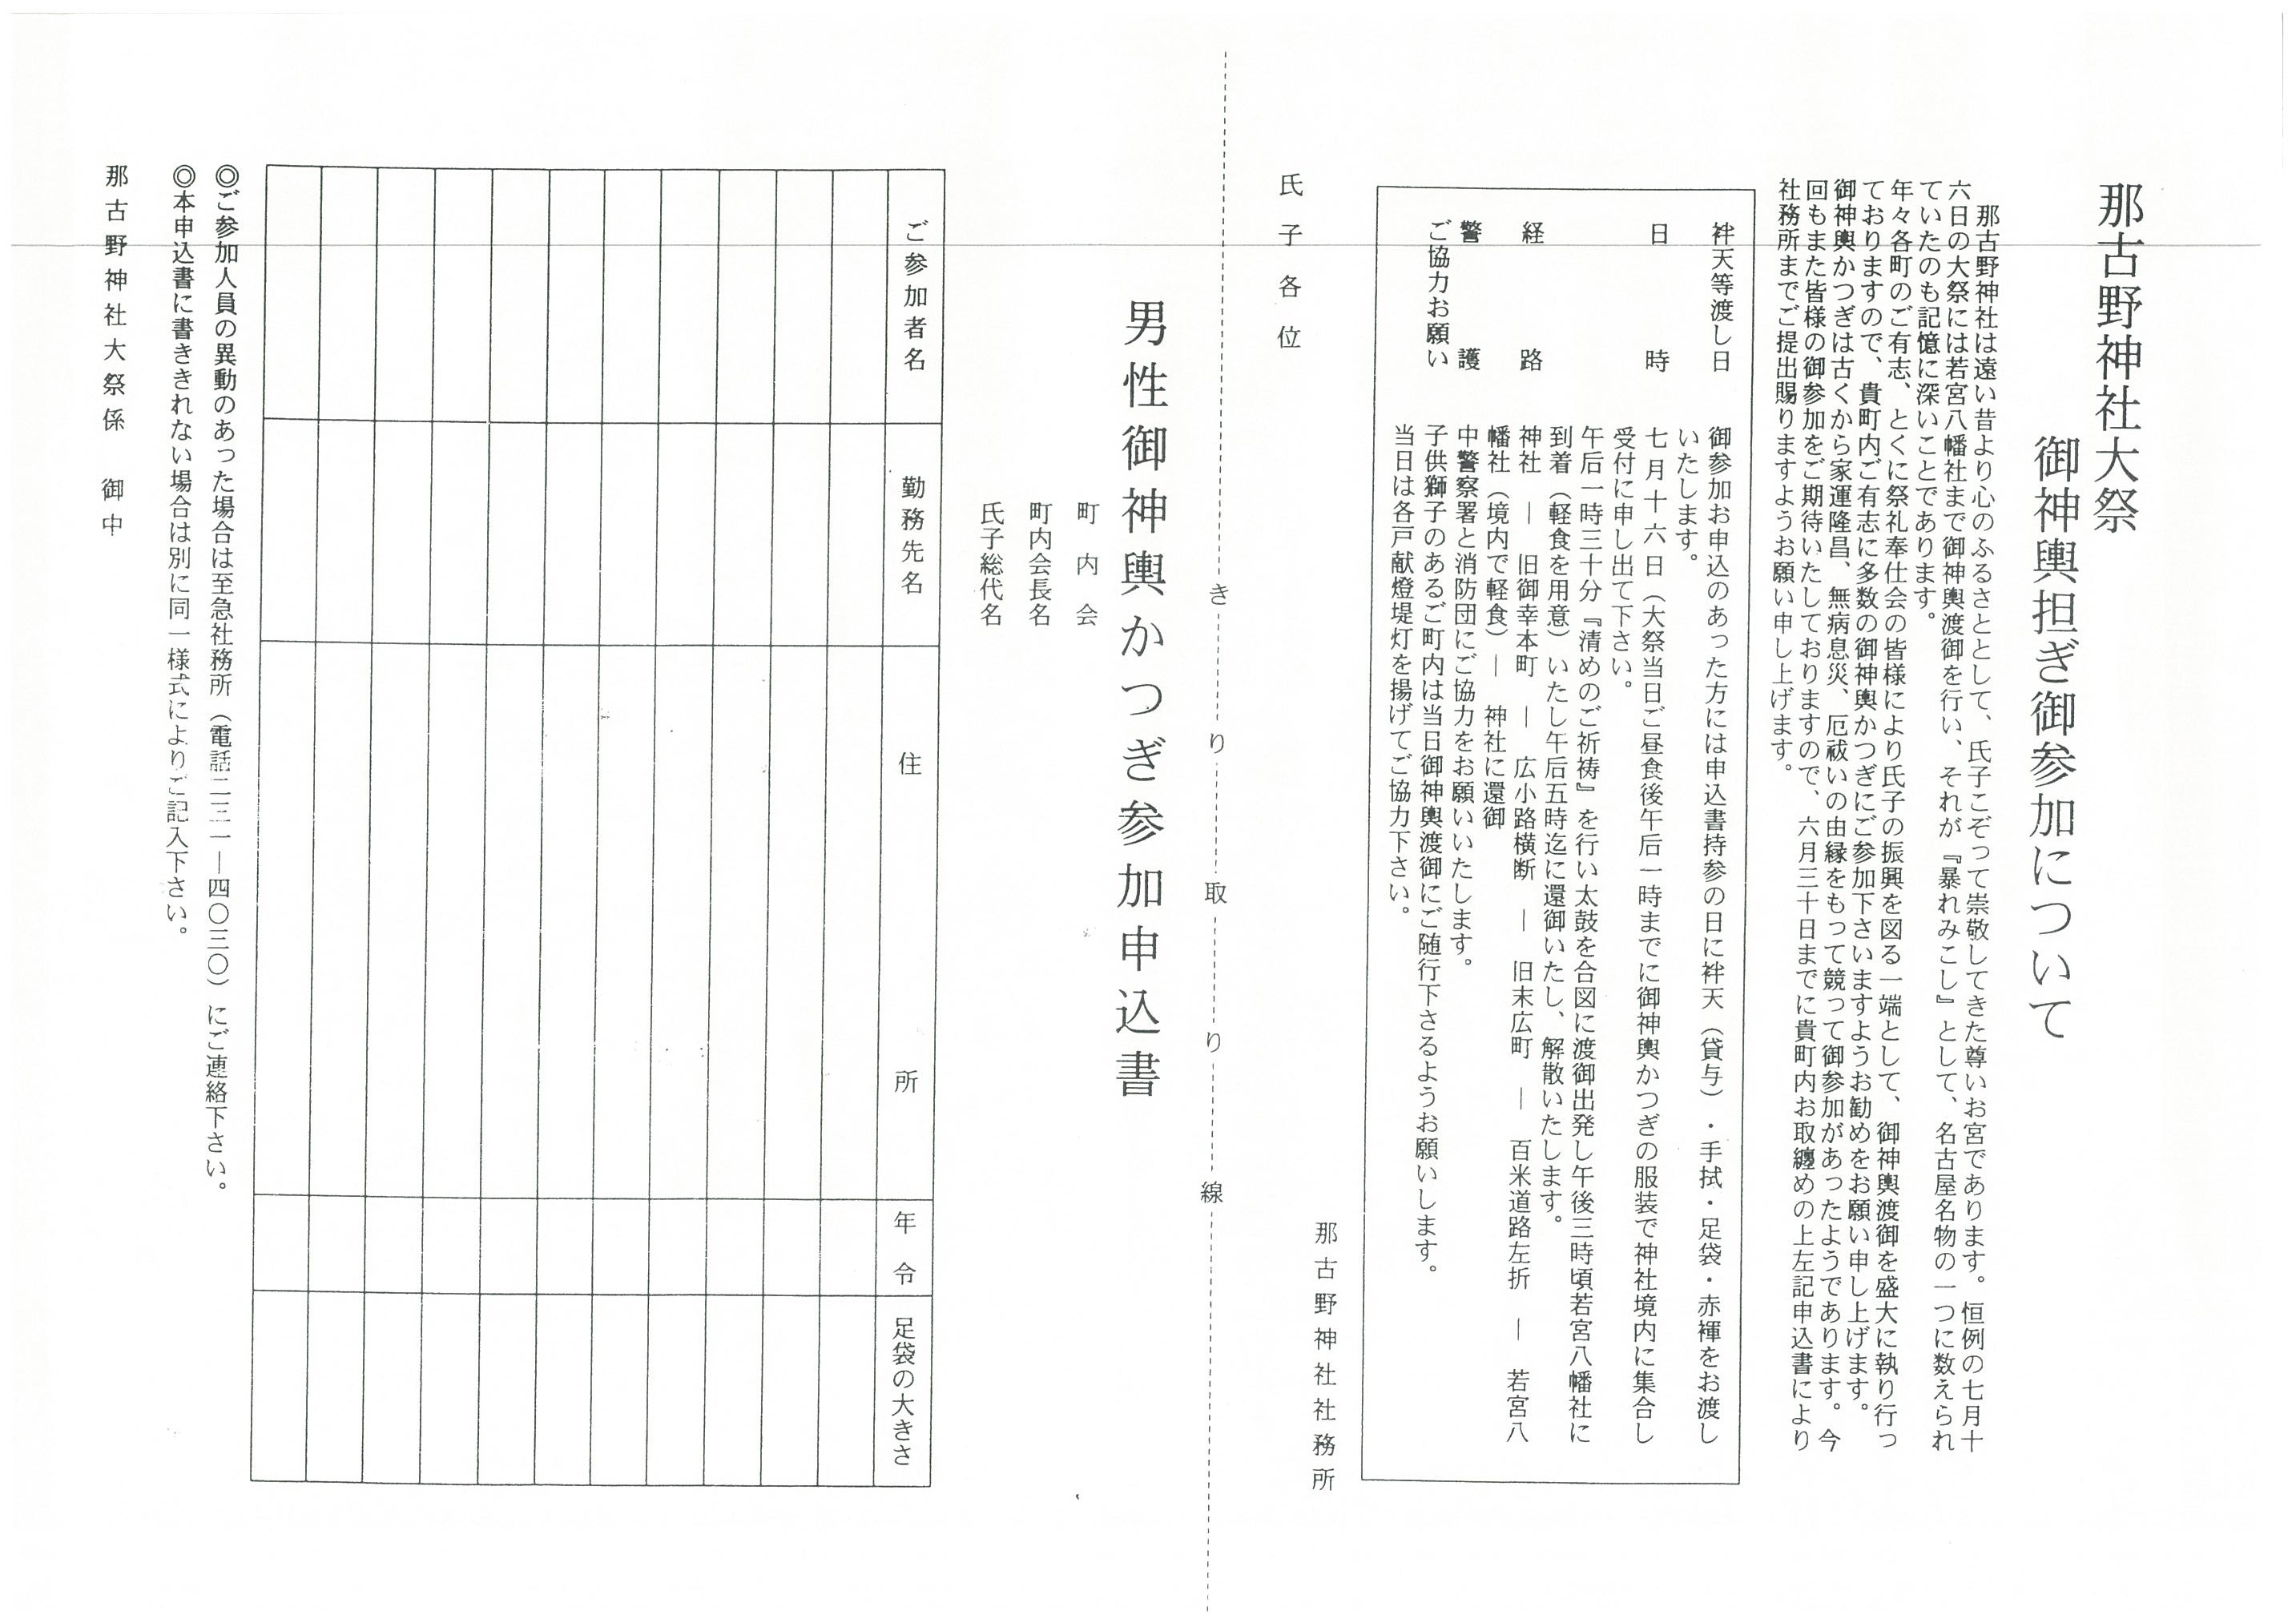 那古野神社大祭
御神輿担ぎ御参加について
那古野神社は遠い昔より心のふるさととして、氏子こぞって崇敬してきた尊いお宮であります。恒例の七月十
六日の大祭には若宮八幡社まで御神輿渡御を行い、それが『暴れみこし』として、名古屋名物の一つに数えられ
ていたのも記憶に深いことであります。
年々各町のご有志、とくに祭礼奉仕会の皆様により氏子の振興を図る一端として、御神輿渡御を盛大に執り行っ
ておりますので、貴町内ご有志に多数の御神輿かつぎにご参加下さいますようお勧めをお願い申し上げます。
御神輿かつぎは古くから家運隆昌、無病息災、厄祓いの由縁をもって競って御参加があったようであります。今
回もまた皆様の御参加をご期待いたしておりますので、六月三十日までに貴町内お取纏めの上左記申込書により
社務所までご提出賜りますようお願い申し上げます。
袢天等渡し日 御参加お申込のあった方には申込書持参の日に袢天（貸与）・手拭・足袋・赤褌をお渡し
いたします。
日時 七月十六日（大祭当日ご昼食後午后一時までに御神輿かつぎの服装で神社境内に集合し
受付に申し出て下さい。
午后一時三十分『清めのご祈祷』を行い太鼓を合図に渡御出発し午後三時頃若宮八幡社に
到着（軽食を用意）いたし午后五時迄に還御いたし、解散いたします。
経路 神社 ― 旧御幸本町 ― 広小路横断 ― 旧末広町 ― 百米道路左折 ― 若宮八
幡社（境内で軽食）― 神社に還御
警護 中警察署と消防団にご協力をお願いいたします。
ご協力お願い 子供獅子のあるご町内は当日御神輿渡御にご随行下さるようお願いします。
当日は各戸献燈堤灯を揚げてご協力下さい。
那古野神社社務所
氏子各位
きり取り線
男性御神輿かつぎ参加申込書
町内会
町内会長名
氏子総代名
ご参加者名 勤務先名 住所 年令 足袋の大きさ
◎ご参加人員の異動のあった場合は至急社務所（電話二三一―四〇三〇）にご連絡下さい。
◎本申込書に書ききれない場合は別に同一様式によりご記入下さい。
那古野神社大祭係 御中